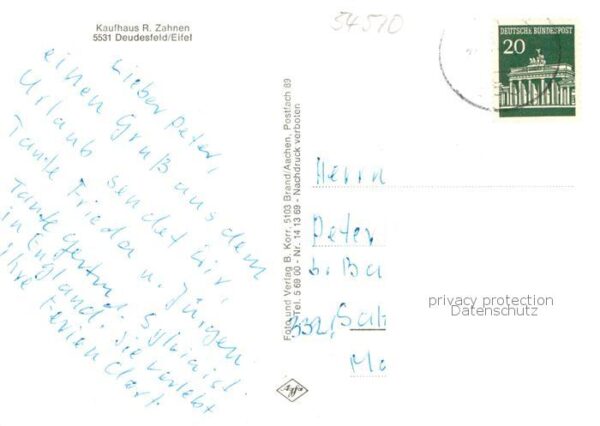 Kaufhaus R. Zahnen
5531 Deudesfeld/Eifel
54570
DEUTSCHE BUNDESPOST
20
Lieber Peter,
einen Gruß aus dem
Urlaub sendet Dir,
Tante Frieda u. Jürgen
Tante Gertrud. Sylvia ist
in England. Sie verlebt
ihre Ferien dort.
Foto und Verlag B. Korr, 5103 Brand/Aachen, Postfach 89
Tel. 5 69 00 - Nr. 14 13 69 - Nachdruck verboten
Herrn
Peter
b. Ba
332, Sal
Mo
privacy protection
Datenschutz
Agfa